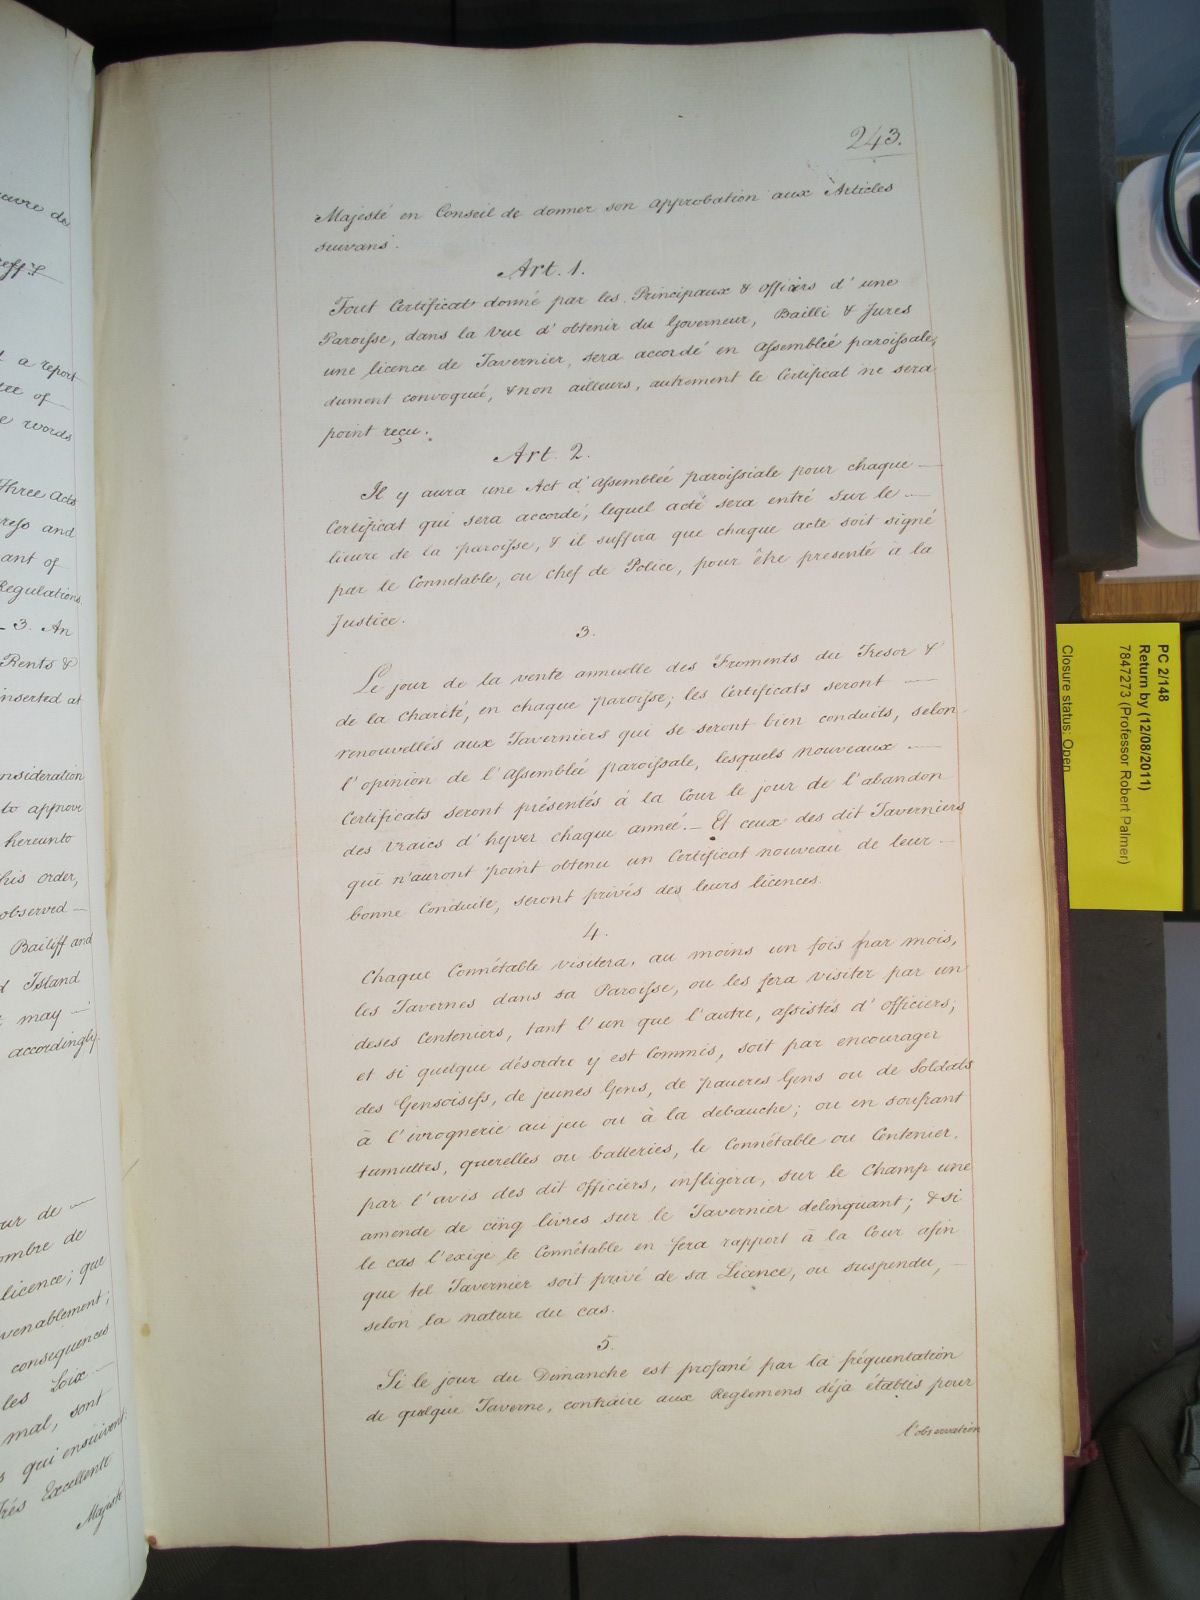 243.
Majesté en Conseil de donner son approbation aux Articles
suivans.
Art. 1.
Tout Certificat donné par les Principaux & officirs d'une
Paroisse, dans la vue d'obtenir du Governeur, Bailli & Jures
une licence de Tavernier, sera accordé en Assembleé paroissale,
dument convoqueé, & non ailleurs, autrement le Certificat ne sera
point reçu.
Art. 2.
Il y aura une Act d'Assembleé paroissiale pour chaque —
Certificat qui sera accordé, lequel acte sera entré sur le —
lieure de la paroisse, & il suffira que chaque acte soit signé
par le Connetable, ou chef de Police, pour être presenté à la
Justice.
3.
Le jour de la vente annuelle des Froments du Tresor &
de la Charité, en chaque paroisse; les Certificats seront —
renouvellés aux Taverniers qui se seront bien conduits, selon
l'opinion de l'Assembleé paroissale, lesquels nouveaux —
Certificats seront présentés à la Cour le jour de l'abandon
des Vraics d'hyver chaque anneé. — Et ceux des dit Taverniers
qui n'auront point obtenu un Certificat nouveau de leur —
bonne Conduite, seront privés des leurs licences.
4.
Chaque Connétable visitera, au moins un fois par mois,
les Tavernes dans sa Paroisse, ou les fera visiter par un
deses Centeniers, tant l'un que l'autre, assistés d'officiers;
et si quelque désordre y est Commis, soit par encourager
des Gensoisifs, de jeunes Gens, de paueres Gens ou de Soldats
à l'ivrognerie au jeu ou à la debauche; ou en soufrant
tumultes, querelles ou batteries, le Connétable ou Centenier,
par l'avis des dit Officiers, infligera, sur le Champ une
amende de cinq livres sur le Tavernier delinquant; & si
le cas l'exige le Connétable en fera rapport à la Cour afin
que tel Tavernier soit privé de sa Licence, ou suspendu, —
selon la nature du cas.
5.
Si le jour du Dimanche est profané par la fréquentation
de quelque Taverne, contraire aux Reglemens déja établis pour
l'observation
a report
words
Three Acts
and
ant of
Regulations
3. An
Rents &
inserted at
nsideration
to approve
hereunto
his order,
observed —
Bailiff and
Island
may —
accordingly.
ur de —
ombre de
licence; que
venablement;
consequences
les Loix —
mal, sont
qui ensuivent
Excellente
Majesté
PC 2/148
Return by (12/08/2011)
7847273 (Professor Robert Palmer)
Closure status: Open